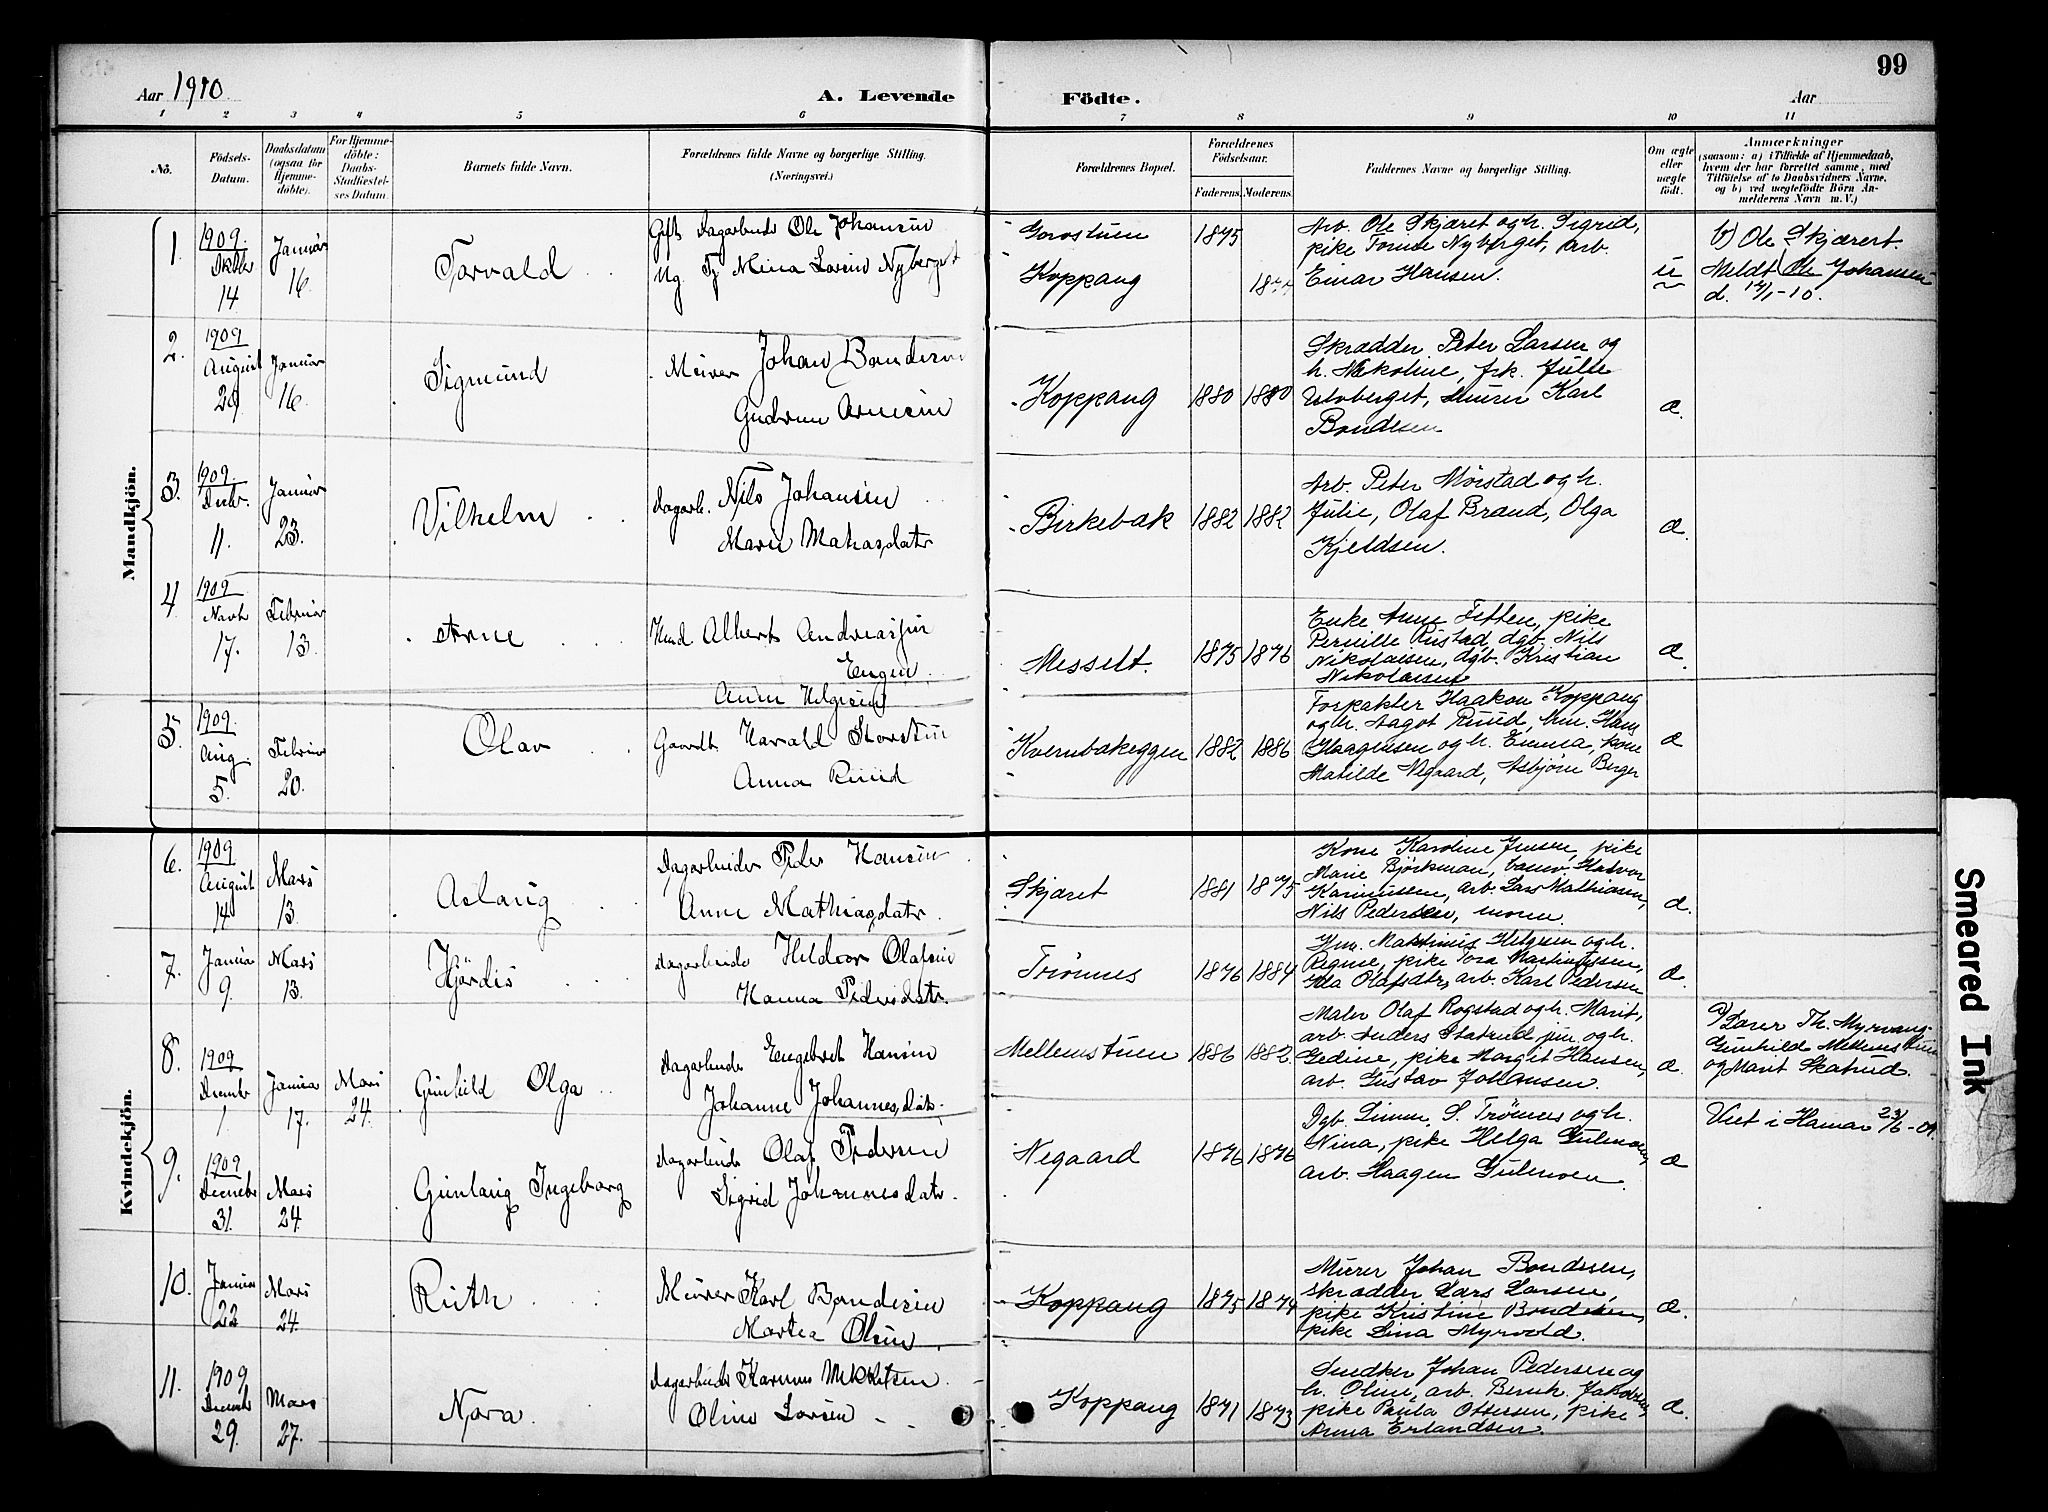 99
Aar 1910.
A. Levende Födte.
Aar
1 2 3 4 5 6 7 8 9 10 11
No.
Födsels-Datum.
Daabsdatum (ogsaa for Hjemme-döbte).
For Hjemme-döbte: Daabs-Stadfæstel-ses Datum.
Barnets fulde Navn.
Forældrenes fulde Navne og borgerlige Stilling. (Næringsvei.)
Forældrenes Bopæl.
Forældrenes Födselsaar.
Faderens. Moderens.
Faddernes Navne og borgerlige Stilling.
Om ægte eller uægte födt.
Anmærkninger
(saasom: a) i Tilfælde af Hjemmedaab, hvem der har forrettet samme, med Tilföielse af to Daabsvidners Navne, og b) ved uægtefödte Börn An-melderens Navn m. V.)
Mandkjön.
1. 1909. Oktbr 14 Januar 16. Torvald
Gift Dagarbeider Ole Johansen
Ug. Tj. Mina Lovise Nyberget
Gorostuen
Koppang
1875
Arb. Ole Skjæret og h. Sigrid,
pike Tomine Nyberget, Arb.
Einar Hansen.
u
b) Ole Skjæret.
Meldt Ole Johansen
d. 14/1-10.
2. 1909 August 29 Januar 16. Sigmund
Murer Johan Bondesen
Gudrun Arnesen
Koppang 1880 1880
Skrædder Peter Larsen og
h. Nikoline, frk. Julie
Utvberget, Murer Karl
Bondesen
æ.
3. 1909. Decbr. 11. Januar 23. Vilhelm
Dagarb. Nils Johansen
Maren Matiasdatr
Birkebak 1882 1882
Arb. Peter Mörstad og h.
Julie, Olaf Brænd, Olga
Kjeldsen.
æ.
4 1909 Novbr 17. Februar 13. Arne
Albert Andreassen
Engen.
Anne Helgesen
Messelt. 1875 1876
Enke Anne Tetten, pike
Pernille Rustad, dgb. Nils
Nikolaisen, dgb. Kristian
Nikolaisen
æ.
5. 1909. Aug. 5. Februar 20. Olav
Gaardb. Harald Storstuen
Anna Ruud
Kvernbakeggen 1882 1886
Forpakter Haakon Koppang
og h. Aagot Ruud, Hans
Haagensen og h. Emma, kone
Matilde Negaard, Asbjörn Berger
æ
Kvindekjön.
6. 1909 August 14 Mars 13. Aslaug
Dagarbeider Peder Hansen
Anne Mathiasdatr.
Skjæret 1881 1875
Kone Karoline Jensen, pike
Marie Björkman, banev. Halvor
Karinussen, arb. Lars Mathiasen,
Nils Pedersen, moren.
æ.
7. Januar 9. Mars 13. Hjördis
Dagarbeider Heldor Olafsen
Hanna Pedersdatr.
Trönnes 1876 1884
Hm. Martinus Helgesen og h.
Regine, pike Tora Martinussen,
Ida Olafsdtr, arb. Karl Pedersen
æ.
8. 1909 Decembr 1. Januar 17. Mars 24. Gunhild Olga
Dagarbeider Engebret Hansen
Johanne Johannesdatr.
Mellemstuen 1886 1882.
Maler Olaf Rogstad og h. Marit,
arb. Anders Skatrud jun. og h.
Gedine, pike Margit Hansen,
arb. Gustav Johansen.
æ.
a) Lærer Th. Myrvang-
Gunhild Mellemstuen
og Marit Skatrud.
9. 1909 Decembr 31. Mars 24. Gunlaug Ingeborg
Dagarbeider Olaf Pedersen
Sigrid Johannesdatr.
Negaard 1876 1876
Dgb. Simen S. Trönnes og h.
Nina, pike Helga Gulmoen,
arb. Haagen Gulmoen.
æ
Viet i Hamar 23/6-09.
10. Januar 22 Mars 24. Ruth
Murer Karl Bondesen
Martea Olsen.
Koppang 1875 1874
Murer Johan Bondesen,
skrædder Lars Larsen,
pike Kristine Bondesen,
pike Lina Myrvold.
æ.
11. 1909 Decembr 29. Mars 27. Nora.
Dagarbeider Karinus Mikkelsen.
Oline Larsen
Koppang 1871 1873
Snedker Johan Pedersen og
h. Oline, arb. Bernh. Jakobsen,
pike Paula Ottersen, pike
Anna Erlandsen.
æ.
Smeared Ink